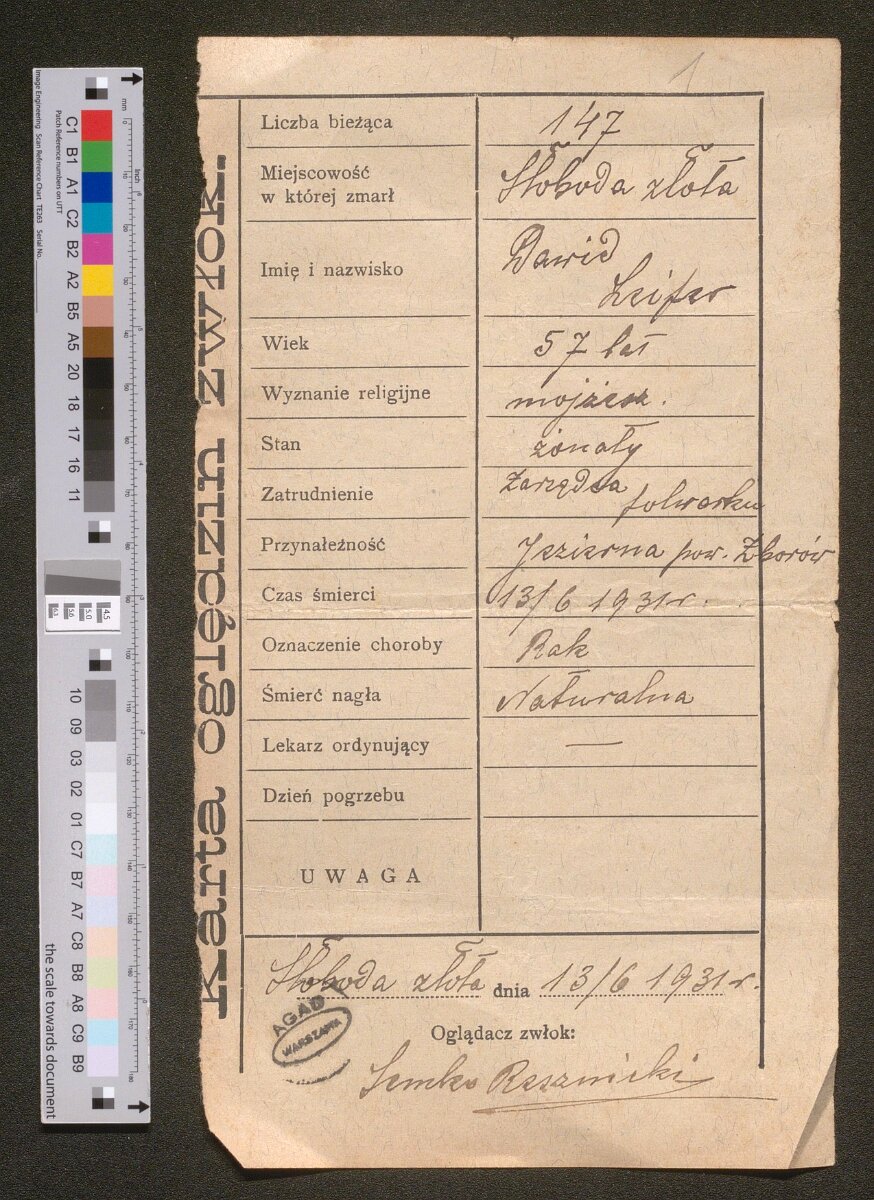 1
Karta oględzin zwłok.
Liczba bieżąca 147
Miejscowość
w której zmarł Słoboda złota
Imię i nazwisko Dawid
Leifer
Wiek 57 lat
Wyznanie religijne mojżesz.
Stan żonaty
Zatrudnienie Zarządca
folwarku
Przynależność Jezierna pow. Zborów
Czas śmierci 13/6 1931 r.
Oznaczenie choroby Rak
Śmierć nagła Naturalna
Lekarz ordynujący —
Dzień pogrzebu
UWAGA
Słoboda złota dnia 13/6 1931 r.
AGAD
WARSZAWA
Oglądacz zwłok:
Semko
Image Engineering Scan Reference Chart TE263 Serial No.
Patch Reference numbers on UTT
mm
inch
C1 B1 A1 C2 B2 A2 B5 A5 20 18 17 16 11
10 09 03 02 01 C7 B7 A7 C8 B8 A8 C9 B9
the scale towards document